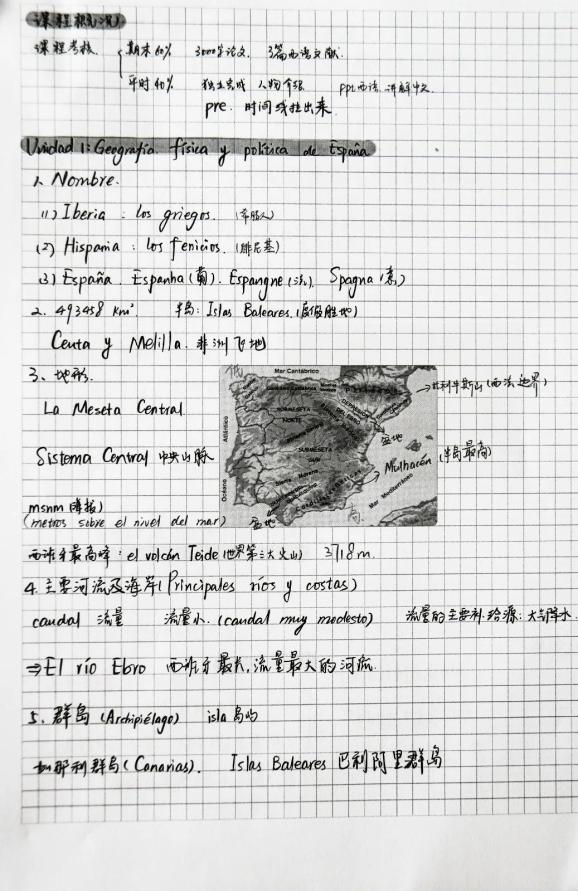 课程概况
课程考核 期末60% 3000字论文. 3篇西语文献.
平时40% 独立完成 人物介绍 ppt西语 讲解中文.
pre. 时间线拉出来.
Unidad 1: Geografía física y política de España
1. Nombre.
(1) Iberia : los griegos. (希腊人)
(2) Hispania : los fenicios. (腓尼基)
(3) España. Espanha (葡). Espangne (法). Spagna (意)
2. 493458 km². 半岛: Islas Baleares. (度假胜地)
Ceuta y Melilla. 非洲飞地
3、地形.
低
Mar Cantábrico
→比利牛斯山 (西法边界)
La Meseta Central
SUBMESETA NORTE
盆地
Océano Atlántico
SUBMESETA SUR
Sistema Central 中央山脉
Mulhacén (半岛最高)
Mar Mediterráneo
高
盆地
msnm (海拔)
(metros sobre el nivel del mar)
西班牙最高峰: el volcán Teide (世界第三大火山) 3718m.
4. 主要河流及海岸 (Principales ríos y costas)
caudal 流量 流量小. (caudal muy modesto) 流量的主要补给源: 大气降水.
⇒ El río Ebro 西班牙最长, 流量最大的河流.
5、群岛 (Archipiélago) isla 岛屿
加那利群岛 (Canarias). Islas Baleares 巴利阿里群岛